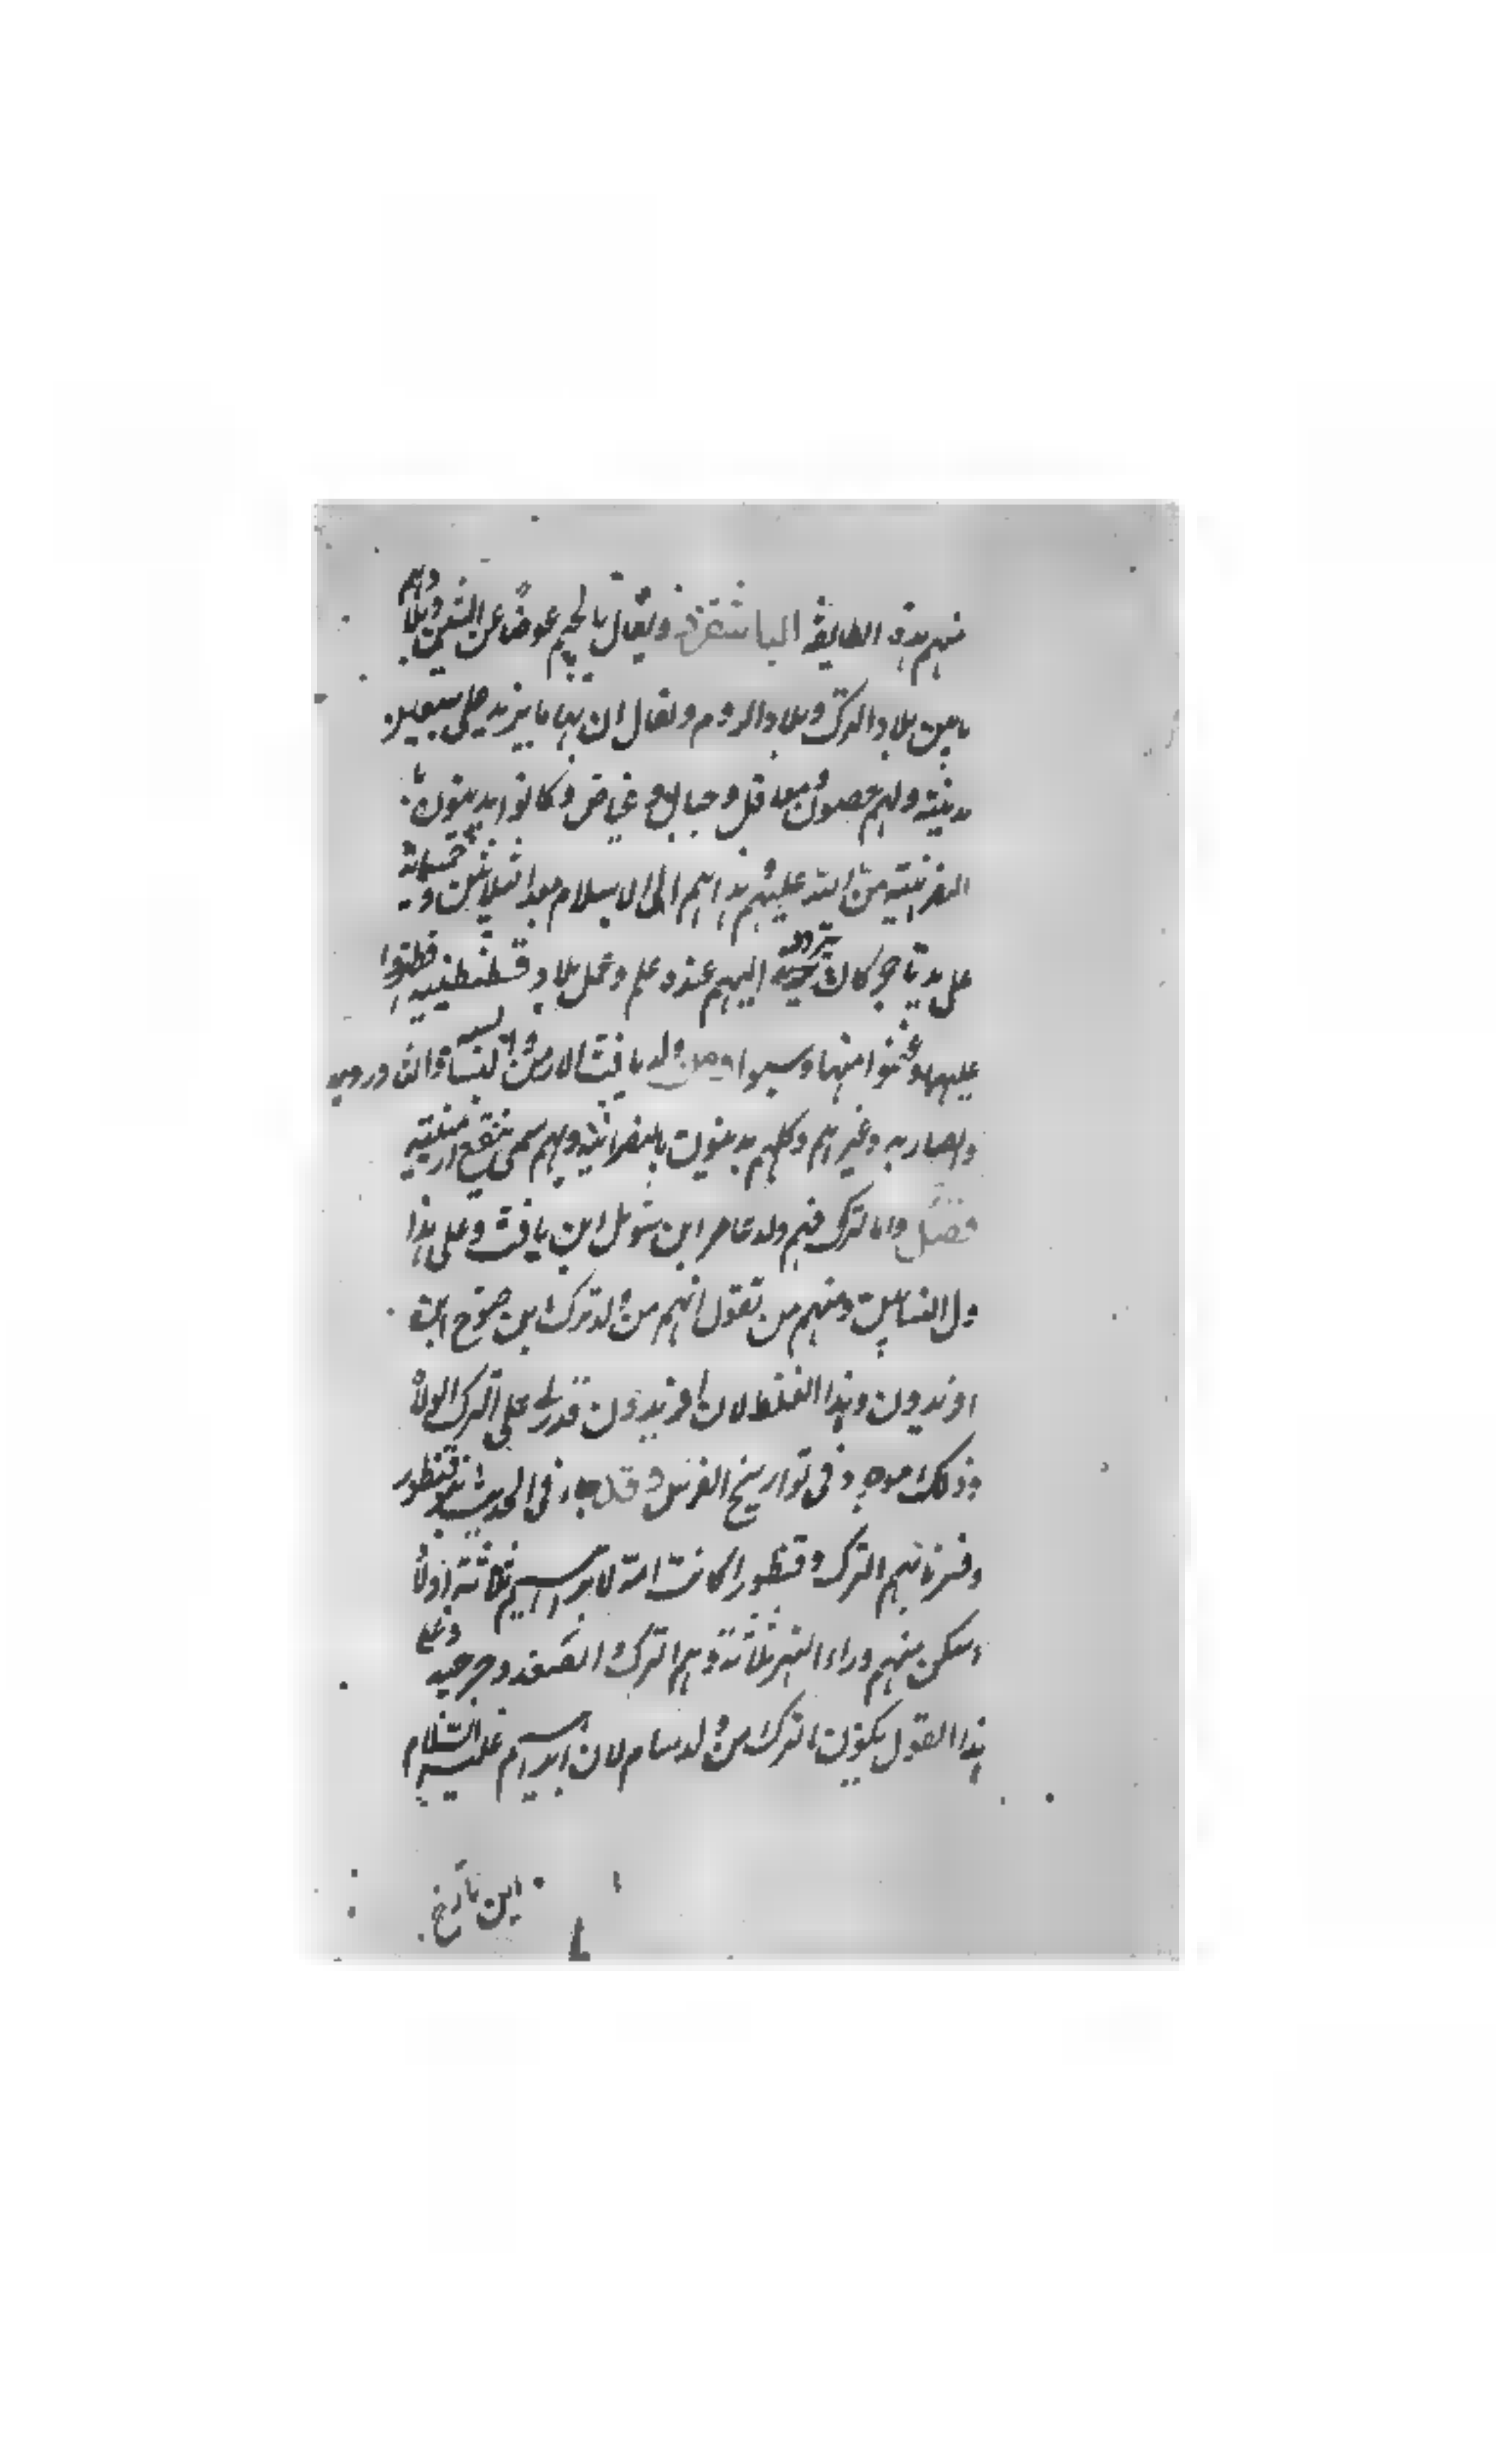 منهم هذه الطايفة الباشقرد ويقال بالجيم عوضًا عن الشين وبلادهم
ما بين بلاد الترك وبلاد الروم ويقال ان بها ما يزيد على سبعين
مدينة ولهم حصون ومعاقل وجبال وغياض وكانوا يدينون
النصرانية من الله عليهم بهدايتهم الى الاسلام بعد الثلاثين وخمسماية
على يد تاجر كان يتردد اليهم عنده علم وعمل بلاد قسطنطينية فظفروا
عليها وغنموا منها وسبوا ومن ولد يافث الارمن
وغيرهم وكلهم يدينون بالنصرانية ولهم سمى
فصل واما الترك فهم ولد عامر ابن سوبل ابن يافث وعلى هذا
جل النسابين ومنهم من يقول انهم من ولد ترك ابن
افريدون وهذا الغلط لان افريدون قد ولى على الترك
وذلك موجود فى تواريخ الفرس وقد جاء فى الحديث بنو قنطورا
وفسر بانهم الترك وقنطورا كانت امة لابراهيم ثلاثة اولاد
سكن منهم وراء النهر ثلاثة وهم الترك و الصغد و وعلى
هذا القول يكون الترك من ولد سام لان ابراهيم عليه السلام
ابن تارخ